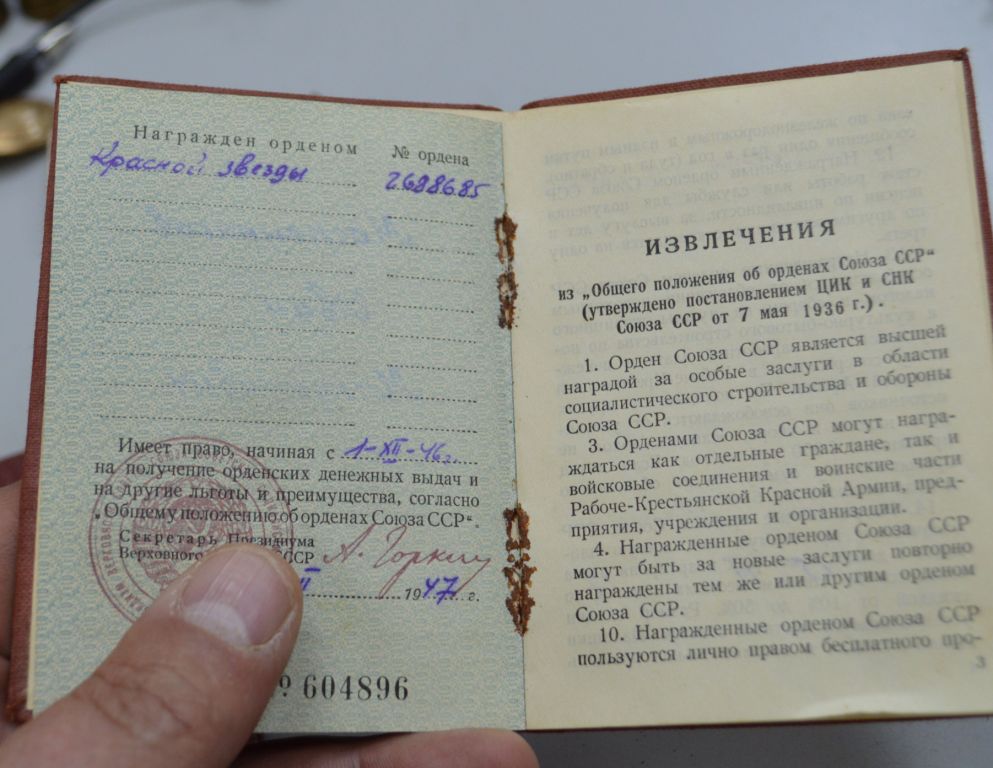 Награжден орденом № ордена
Красной звезды 2698685
Имеет право, начиная с 1-XII-46г.
на получение орденских денежных выдач и
на другие льготы и преимущества, согласно
„Общему положению об орденах Союза ССР“.
Секретарь Президиума
Верховного СССР А. Горкин
1947 г.
№ 604896
ИЗВЛЕЧЕНИЯ
из „Общего положения об орденах Союза ССР“
(утверждено постановлением ЦИК и СНК
Союза ССР от 7 мая 1936 г.).
1. Орден Союза ССР является высшей
наградой за особые заслуги в области
социалистического строительства и обороны
Союза ССР.
3. Орденами Союза ССР могут награ-
ждаться как отдельные граждане, так и
войсковые соединения и воинские части
Рабоче-Крестьянской Красной Армии, пред-
приятия, учреждения и организации.
4. Награжденные орденом Союза ССР
могут быть за новые заслуги повторно
награждены тем же или другим орденом
Союза ССР.
10. Награжденные орденом Союза ССР
пользуются лично правом бесплатного про-
3